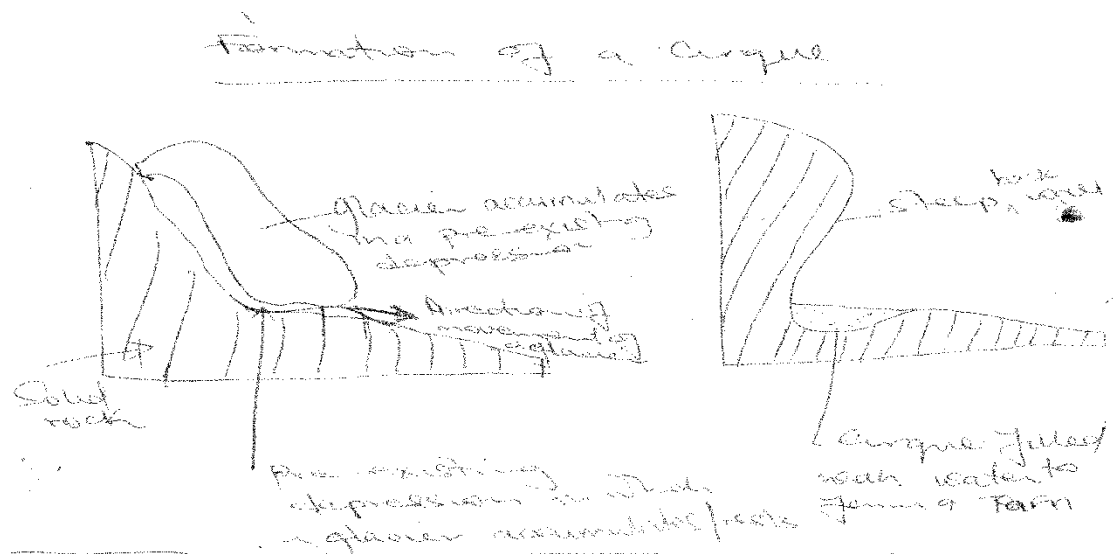 Formation of a Cirque
glacier accumulates
in a pre-existing
depression
Direction of
movement of
glacier
Solid
rock
Pre-existing
depression in which
glacier accumulates/rests
rock
steep, wall
Cirque filled
with water to
form a Tarn